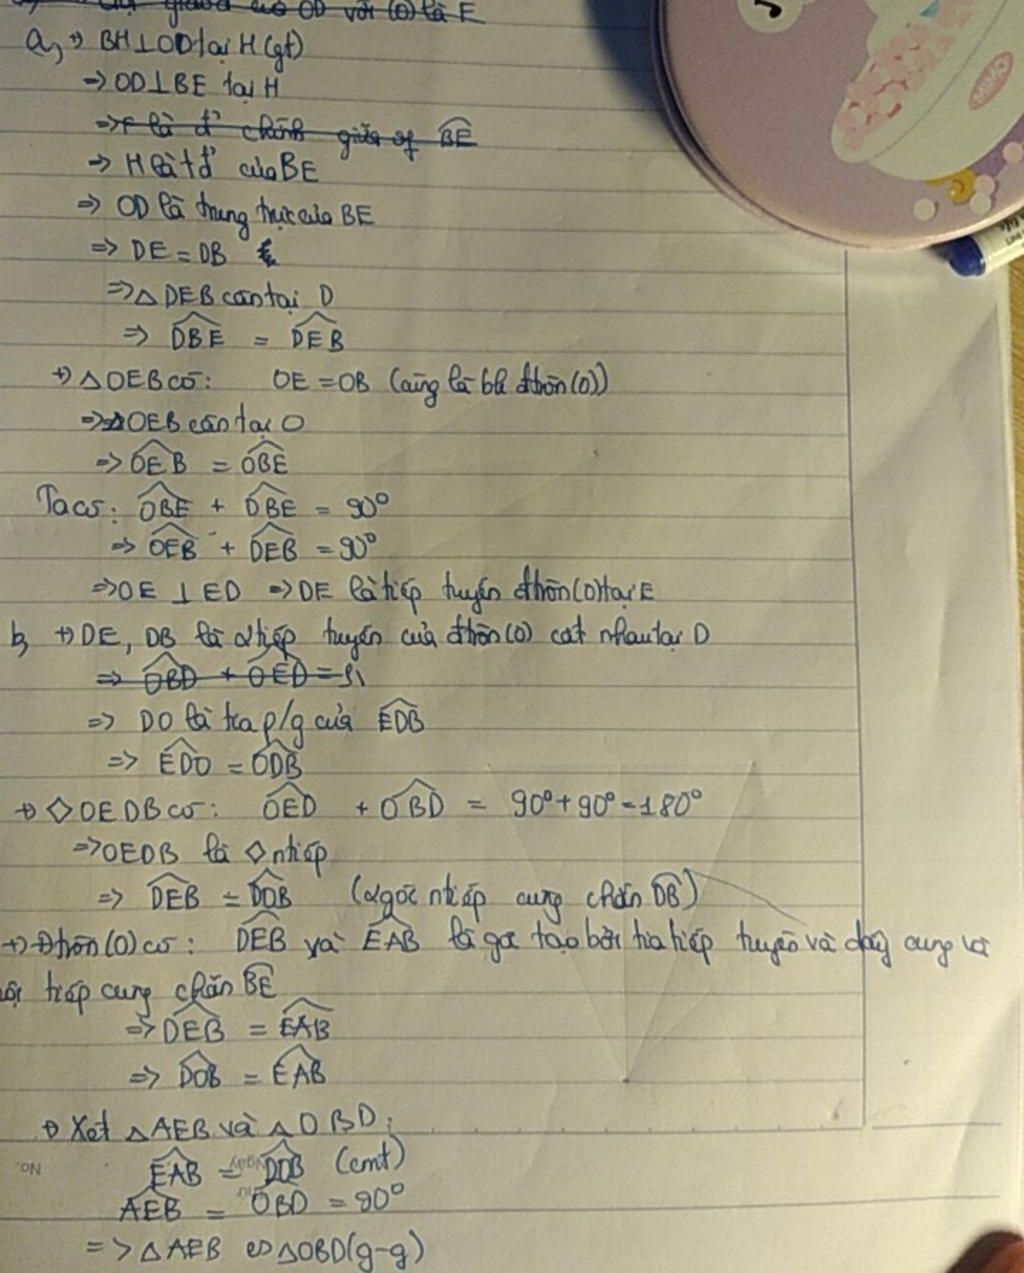 OD với (O) là F
a, +) BH⊥OD tại H (gt)
=> OD⊥BE tại H
=> F là đ' chính giữa of BE
=> H là tđ' của BE
=> OD là trung trực của BE
=> DE = DB
=> △DEB cân tại D
=> DBE = DEB
+) △OEB có: OE = OB (cùng là bk đtròn (O))
=> △OEB cân tại O
=> OEB = OBE
Ta có: OBE + DBE = 90°
=> OEB + DEB = 90°
=> OE ⊥ ED => DE là tiếp tuyến đtròn (O) tại E
b, +) DE, DB là 2 tiếp tuyến của đtròn (O) cắt nhau tại D
=> OBD + OED =
=> DO là tia p/g của EDB
=> EDO = ODB
+) ◇OEDB có: OED + OBD = 90° + 90° = 180°
=> OEDB là ◇ ntiếp
=> DEB = DOB (2 góc ntiếp cùng chắn DB)
+) Đtròn (O) có: DEB và EAB là góc tạo bởi tia tiếp tuyến và dây cung và
nội tiếp cùng chắn BE
=> DEB = EAB
=> DOB = EAB
+) Xét △AEB và △OBD:
No.
EAB = DOB (cmt)
Ngày
AEB = OBD = 90°
=> △AEB ∽ △OBD (g-g)
MIMO